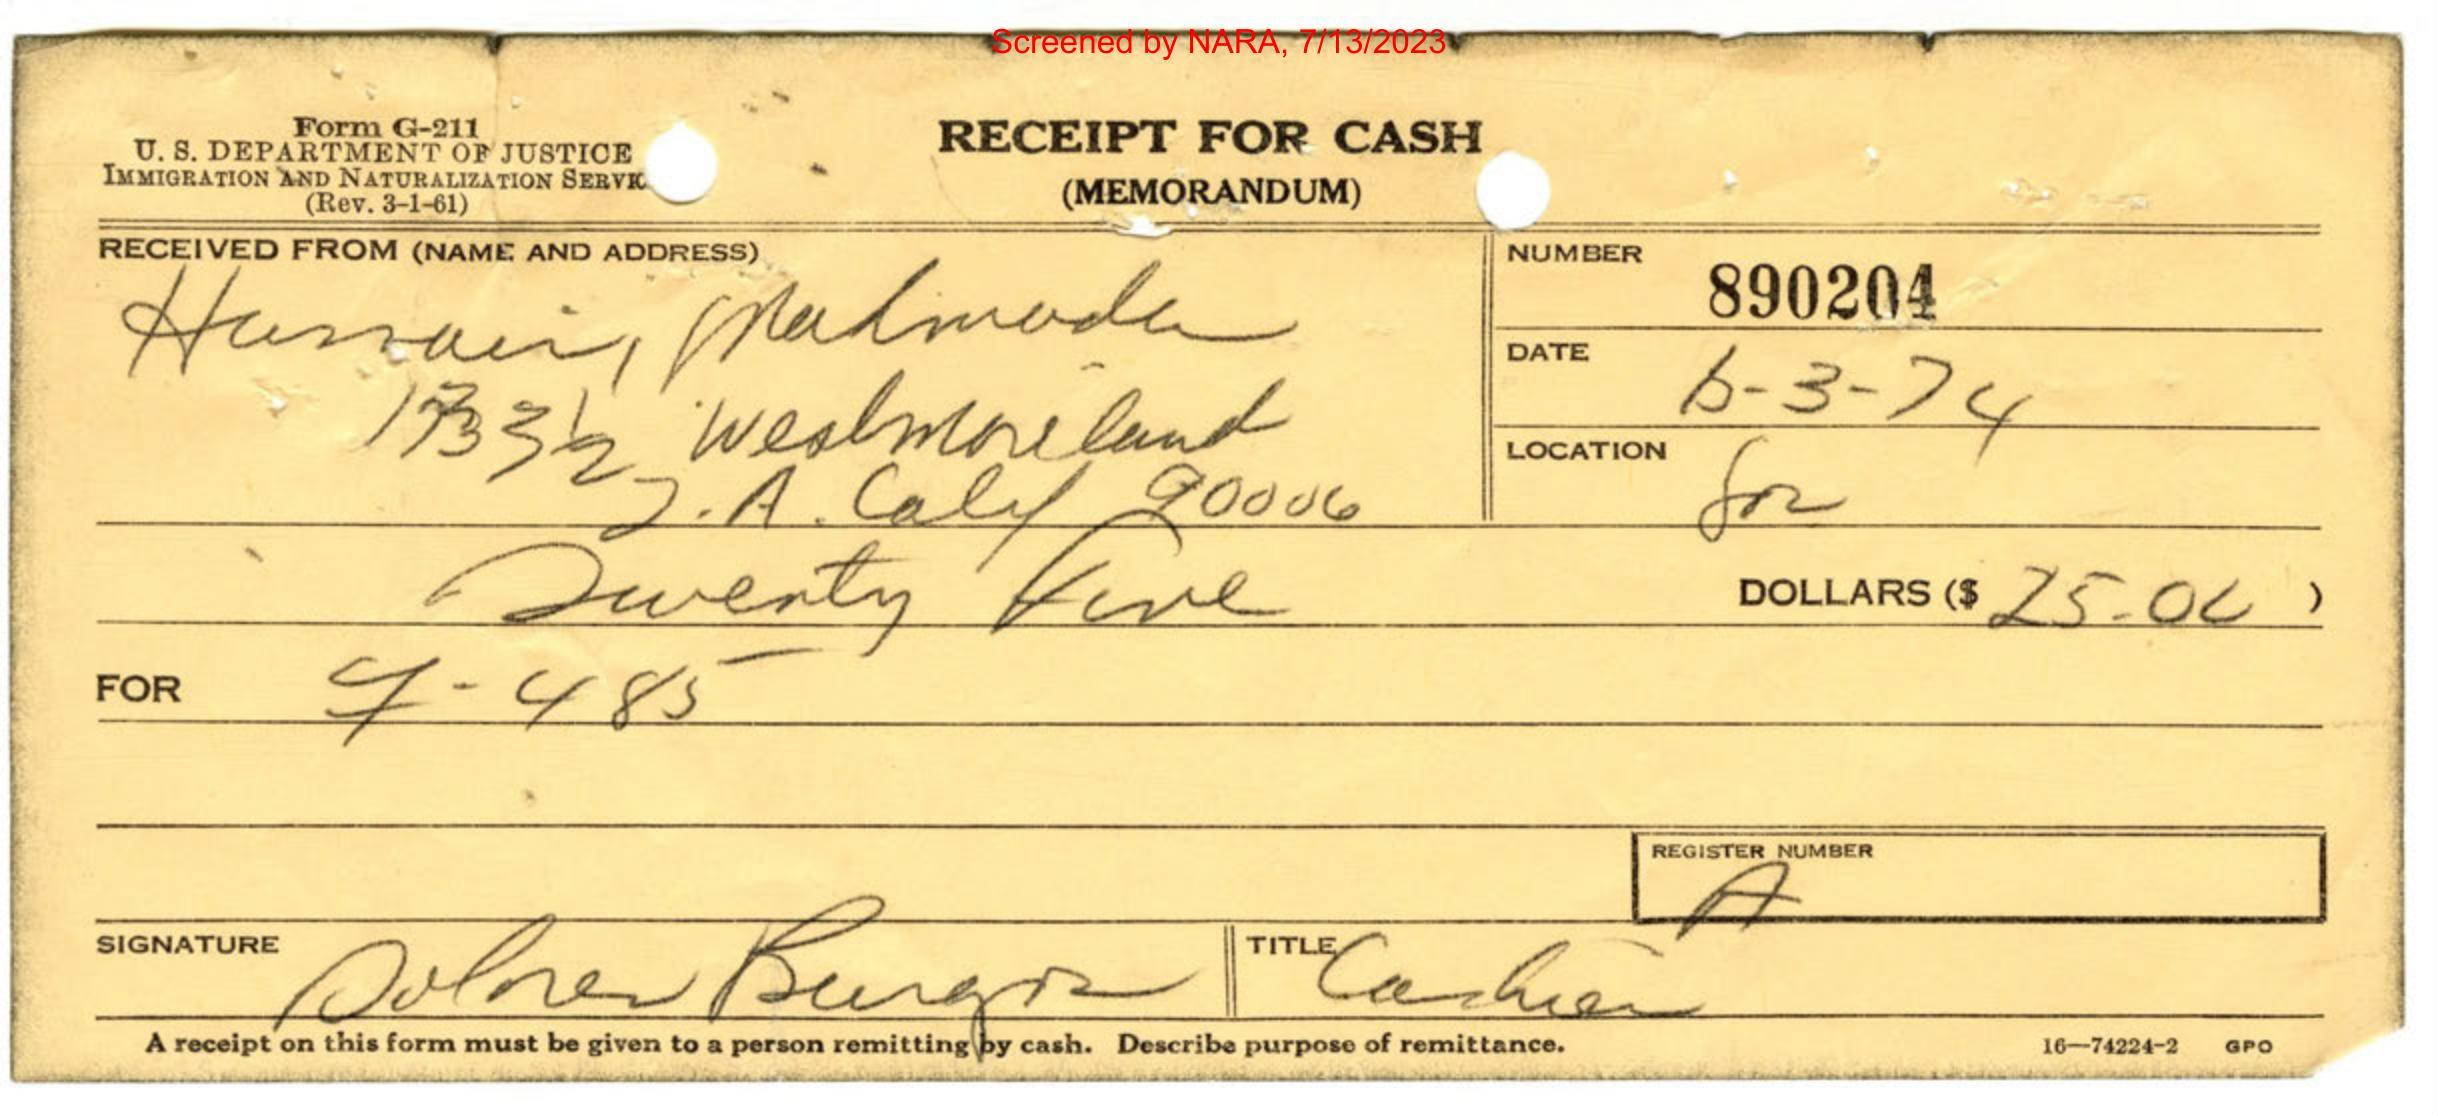 Screened by NARA, 7/13/2023
Form G-211
U. S. DEPARTMENT OF JUSTICE
IMMIGRATION AND NATURALIZATION SERVIC
(Rev. 3-1-61)
RECEIPT FOR CASH
(MEMORANDUM)
RECEIVED FROM (NAME AND ADDRESS)
Hussain, Mahmooda
Westmoreland
L.A. Calif 90006
NUMBER
890204
DATE
6-3-74
LOCATION
Twenty Five
DOLLARS ($ 25.00 )
FOR I-485
REGISTER NUMBER
A
SIGNATURE Dolores Burgos
TITLE Cashier
A receipt on this form must be given to a person remitting by cash. Describe purpose of remittance.
16—74224-2 GPO